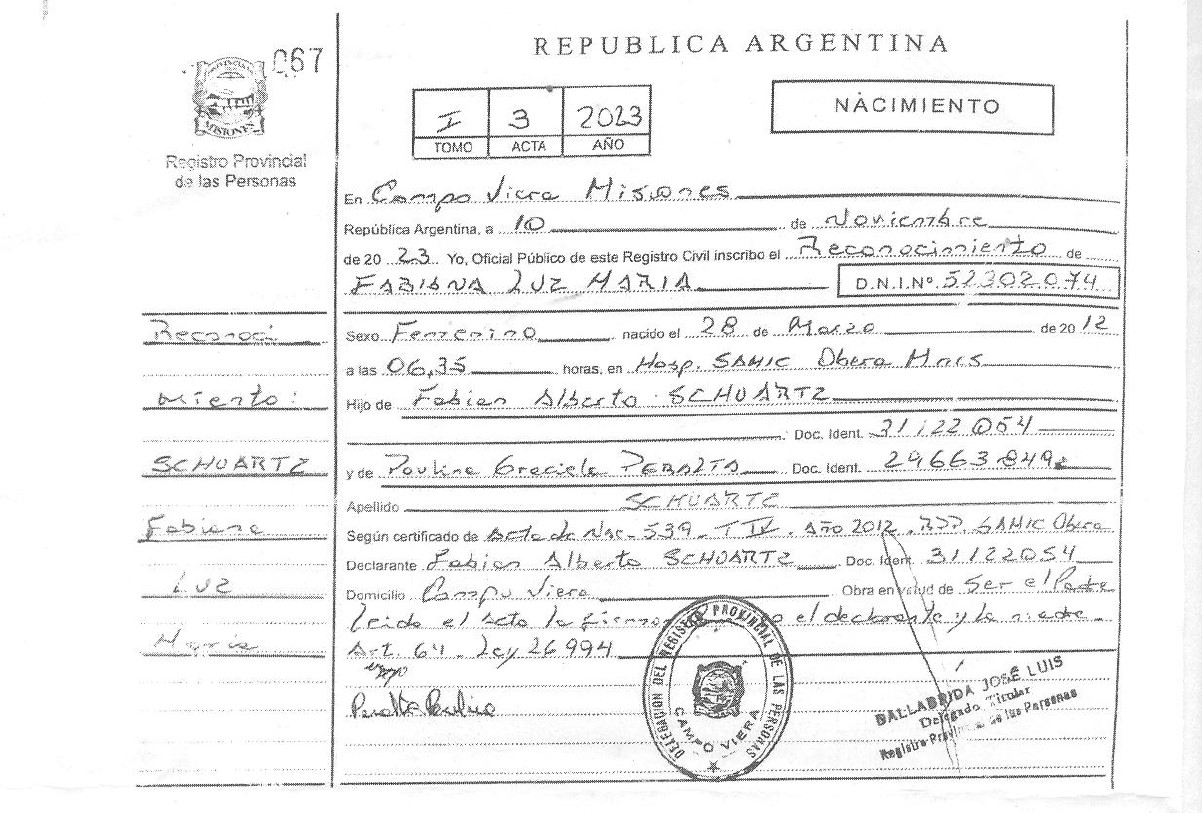 067
PROVINCIA
MISIONES
Registro Provincial
de las Personas
REPUBLICA ARGENTINA
I 3 2023
TOMO ACTA AÑO
NACIMIENTO
En Campo Viera Misiones
República Argentina, a 10 de Noviembre
de 20 23 Yo, Oficial Público de este Registro Civil inscribo el Reconocimiento de
FABIANA LUZ MARIA D.N.I.Nº 52302074
Reconoci
miento:
SCHUARTZ
Fabiana
Luz
María
Sexo Femenino nacido el 28 de Marzo de 20 12
a las 06,35 horas, en Hosp. SAMIC Obera Mnes
Hijo de Fabian Alberto SCHUARTZ
Doc. Ident. 31122054
y de Paulina Graciela PERALTA Doc. Ident. 29663849
Apellido SCHUARTZ
Según certificado de Acta de Nac. 539 - T IV - Año 2012 . RPP. SAMIC Obera
Declarante Fabian Alberto SCHUARTZ Doc. Ident. 31122054
Domicilio Campo Viera Obra en virtud de Ser el Padre
leida el Acta la firma o el declarante y la madre
Art. 64 - Ley 26994
Peralta Paulina
DELEGACION DEL REGISTRO PROVINCIAL DE LAS PERSONAS
CAMPO VIERA
BALLABRIDA JOSÉ LUIS
Delegado Titular
Registro Provincial de las Personas